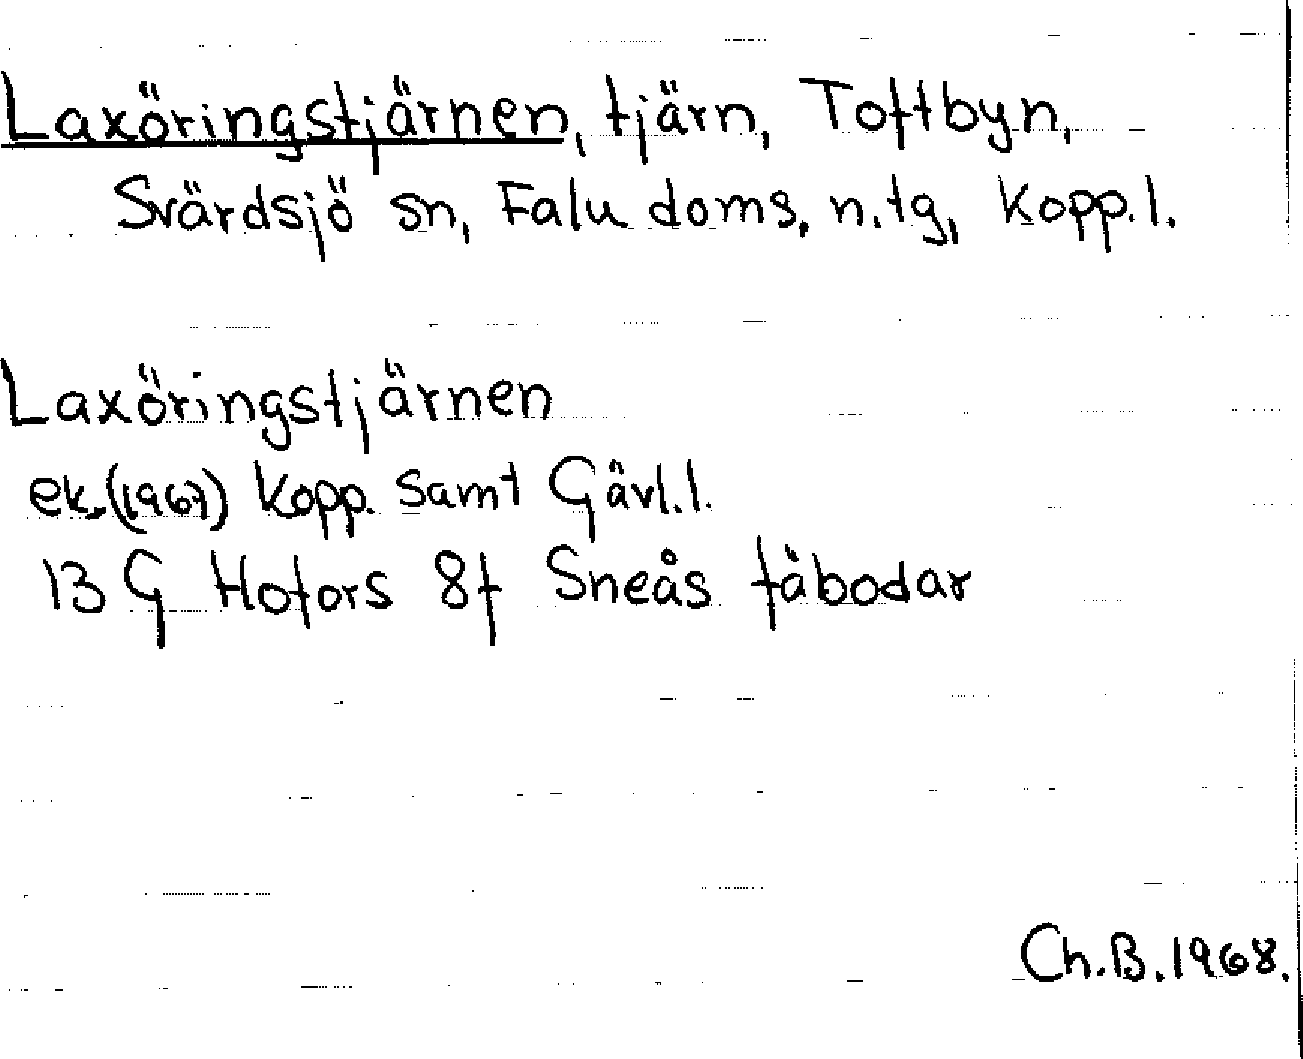 Laxöringstjärnen, tjärn, Toftbyn,
Svärdsjö sn, Falu doms. n. tg, Kopp. l.
Laxöringstjärnen
ek. (1967) Kopp. samt Gävl. l.
13 G Hofors 8f Sneås fäbodar
Ch. B. 1968.